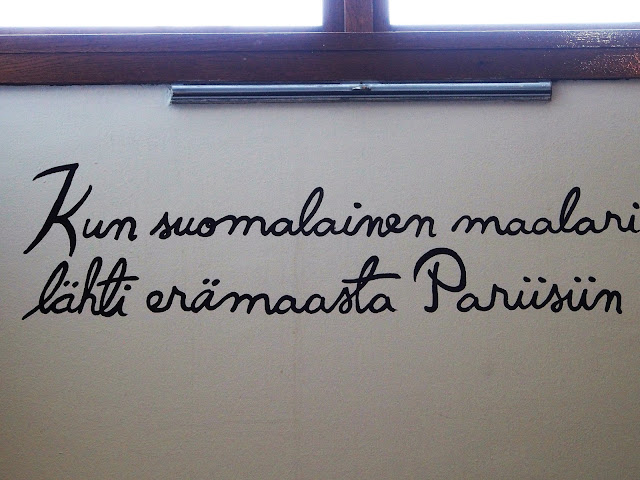 Kun suomalainen maalari
lähti erämaasta Pariisiin